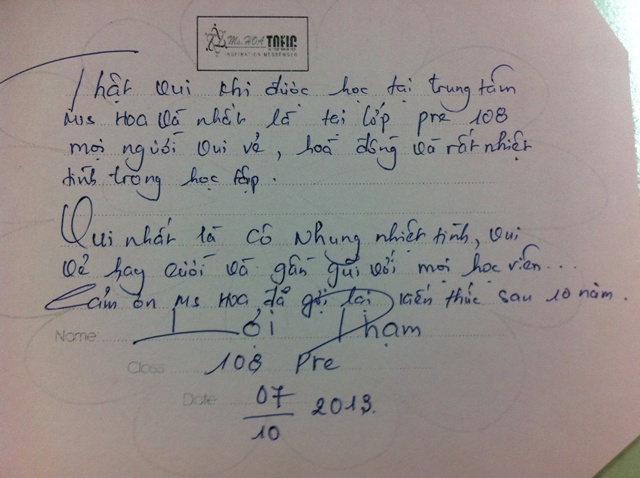 Ms. HOA TOEIC
INSPIRATION MESSENGER
Thật vui khi được học tại trung tâm
Ms Hoa và nhất là tại lớp pre 108
mọi người vui vẻ, hoà đồng và rất nhiệt
tình trong học tập.
Vui nhất là cô Nhung nhiệt tình, vui
vẻ hay cười và gần gũi với mọi học viên...
Cảm ơn Ms Hoa đã gợi lại kiến thức sau 10 năm.
Name Lợi Phạm
Class 108 Pre
Date 07/10 2013.